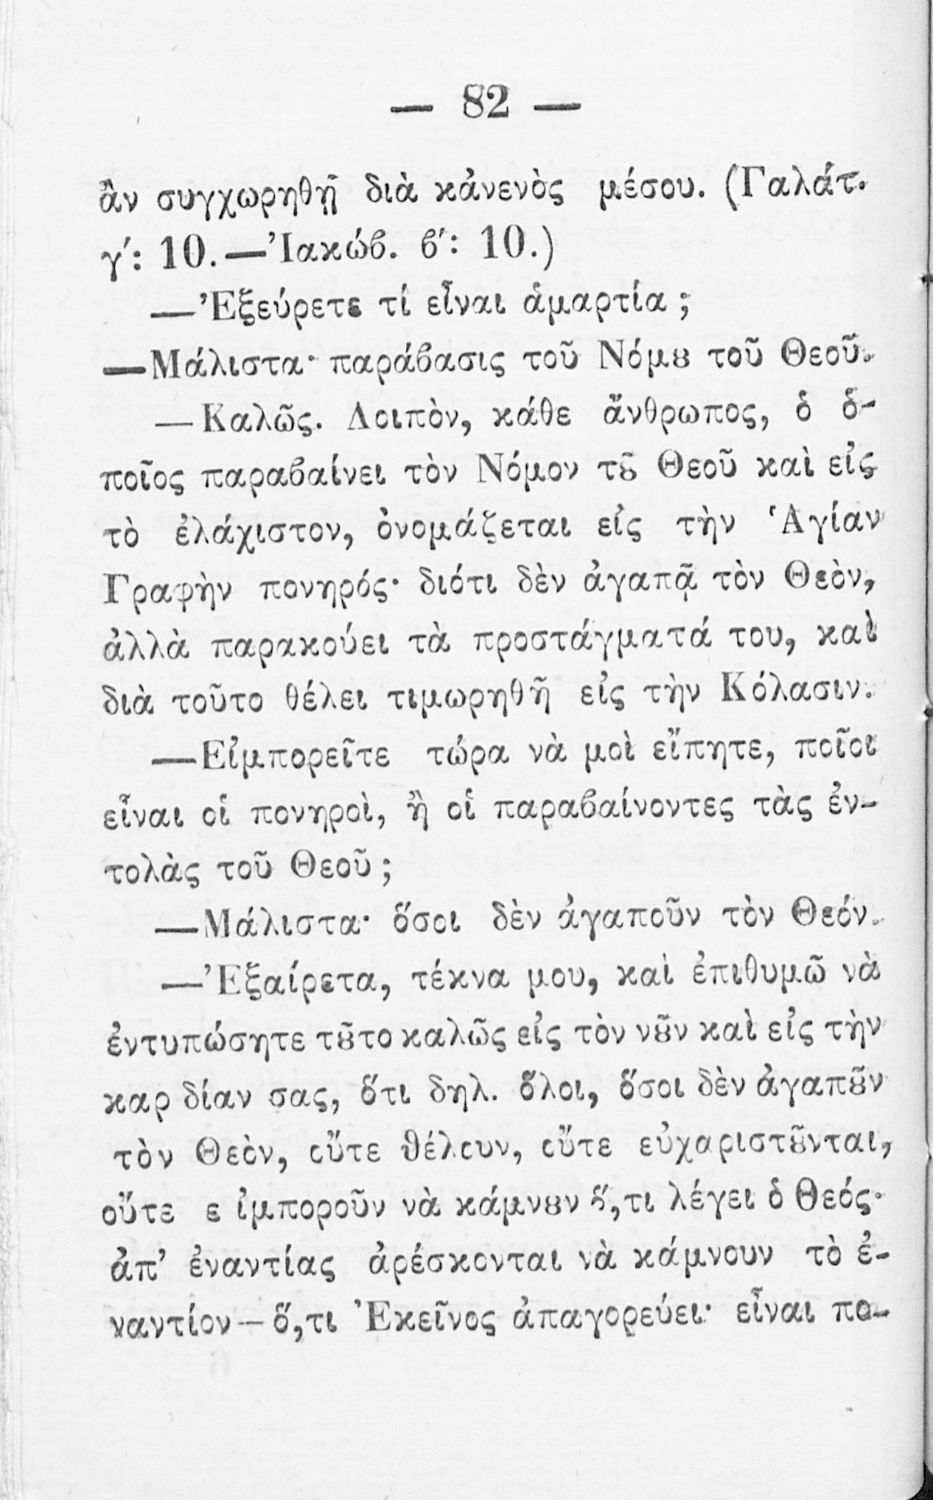 — 82 —
ἂν συγχωρηθῇ διὰ κἀνενὸς μέσου. (Γαλάτ.
γ΄: 10.—Ἰακώϐ. ϐ΄: 10.)
—Ἐξεύρετε τί εἶναι ἁμαρτία ;
—Μάλιστα· παράϐασις τοῦ Νόμȣ τοῦ Θεοῦ.
—Καλῶς. Λοιπὸν, κάθε ἄνθρωπος, ὁ ὁ-
ποῖος παραϐαίνει τὸν Νόμον τȣ͂ Θεοῦ καὶ εἰς
τὸ ἐλάχιστον, ὀνομάζεται εἰς τὴν Ἁγίαν
Γραφὴν πονηρός· διότι δὲν ἀγαπᾷ τὸν Θεὸν,
ἀλλὰ παρακούει τὰ προστάγματά του, καὶ
διὰ τοῦτο θέλει τιμωρηθῆ εἰς τὴν Κόλασιν.
—Εἰμπορεῖτε τώρα νὰ μοὶ εἴπητε, ποῖοι
εἶναι οἱ πονηροὶ, ἢ οἱ παραϐαίνοντες τὰς ἐν-
τολὰς τοῦ Θεοῦ ;
—Μάλιστα· ὅσοι δὲν ἀγαποῦν τὸν Θεόν.
—Ἐξαίρετα, τέκνα μου, καὶ ἐπιθυμῶ νὰ
ἐντυπώσητε τȣ͂το καλῶς εἰς τὸν νȣ͂ν καὶ εἰς τὴν
καρ δίαν σας, ὅτι δηλ. ὅλοι, ὅσοι δὲν ἀγαπȣ͂ν
τὸν Θεὸν, οὔτε θέλουν, οὔτε εὐχαριστȣ͂νται,
οὔτε ε ἰμποροῦν νὰ κάμνȣν ὅ,τι λέγει ὁ Θεός·
ἀπ' ἐναντίας ἀρέσκονται νὰ κάμνουν τὸ ἐ-
ναντίον — ὅ,τι Ἐκεῖνος ἀπαγορεύει· εἶναι πο-